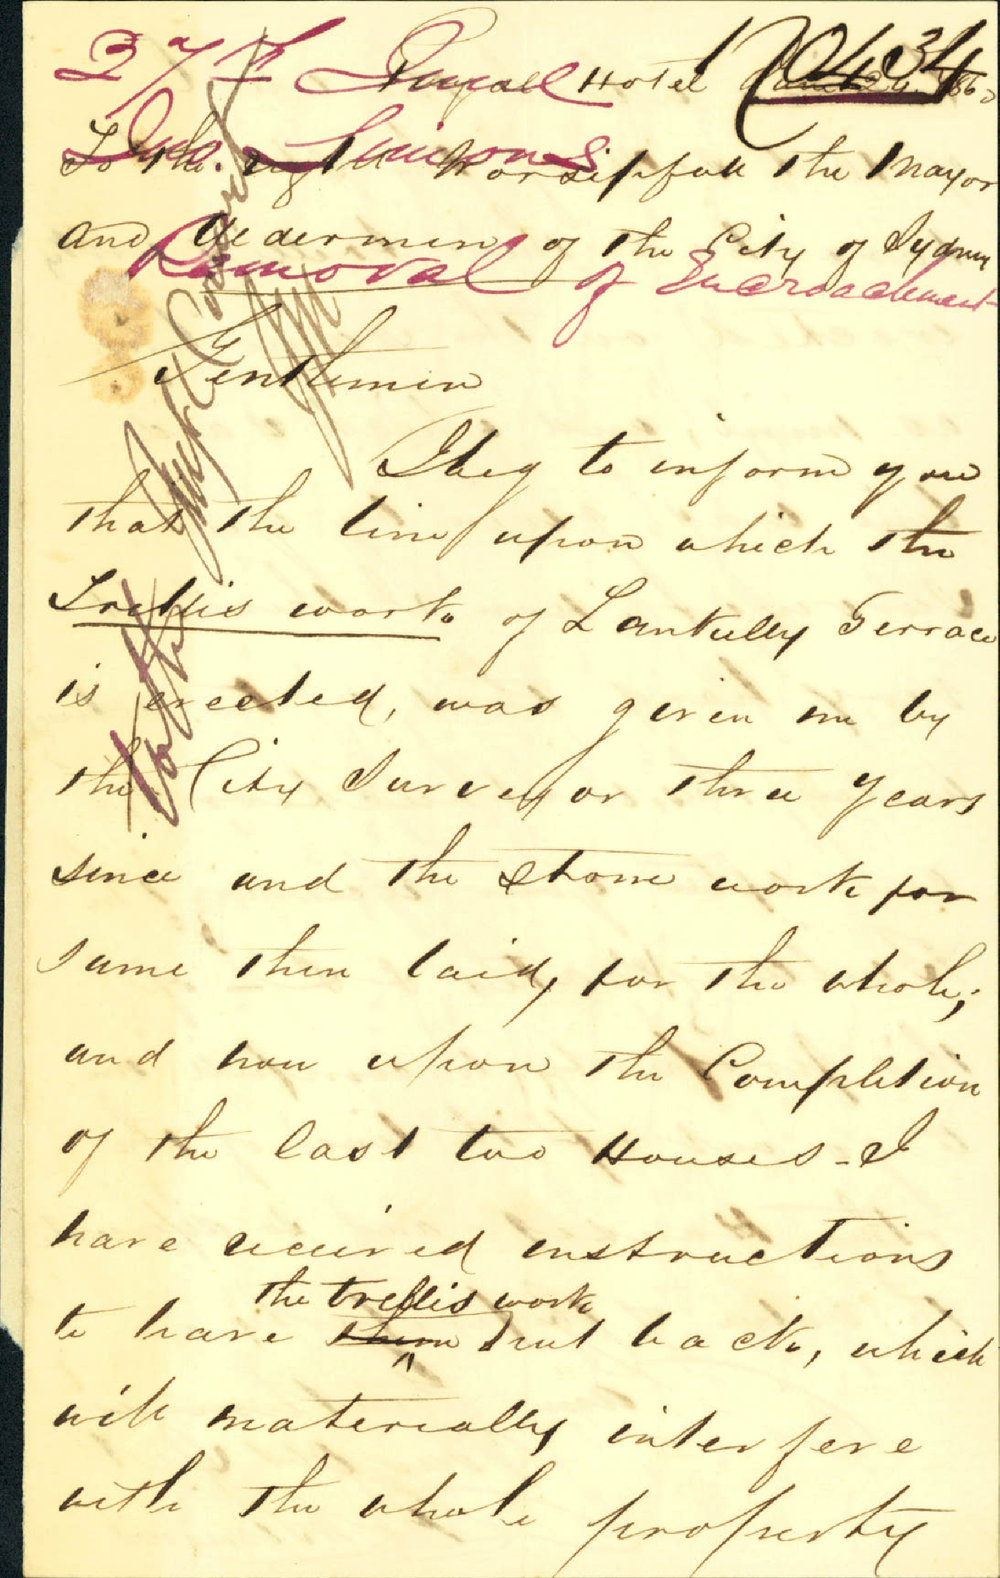 274
Royal Hotel
10434
Removal of Encroachment
To the right Worsipfull the Mayor
and Aldermen of the City of Sydney
Gentlemen
I beg to inform you
that the line upon which the
Trellis work of Lankelly Terrace
is erected, was given me by
the City Surveyor three years
since and the stone work for
same then laid, for the whole;
and now upon the Completion
of the last two Houses - I
have received instructions
the trellis work
to have them put back, which
will materially interfere
with the whole property